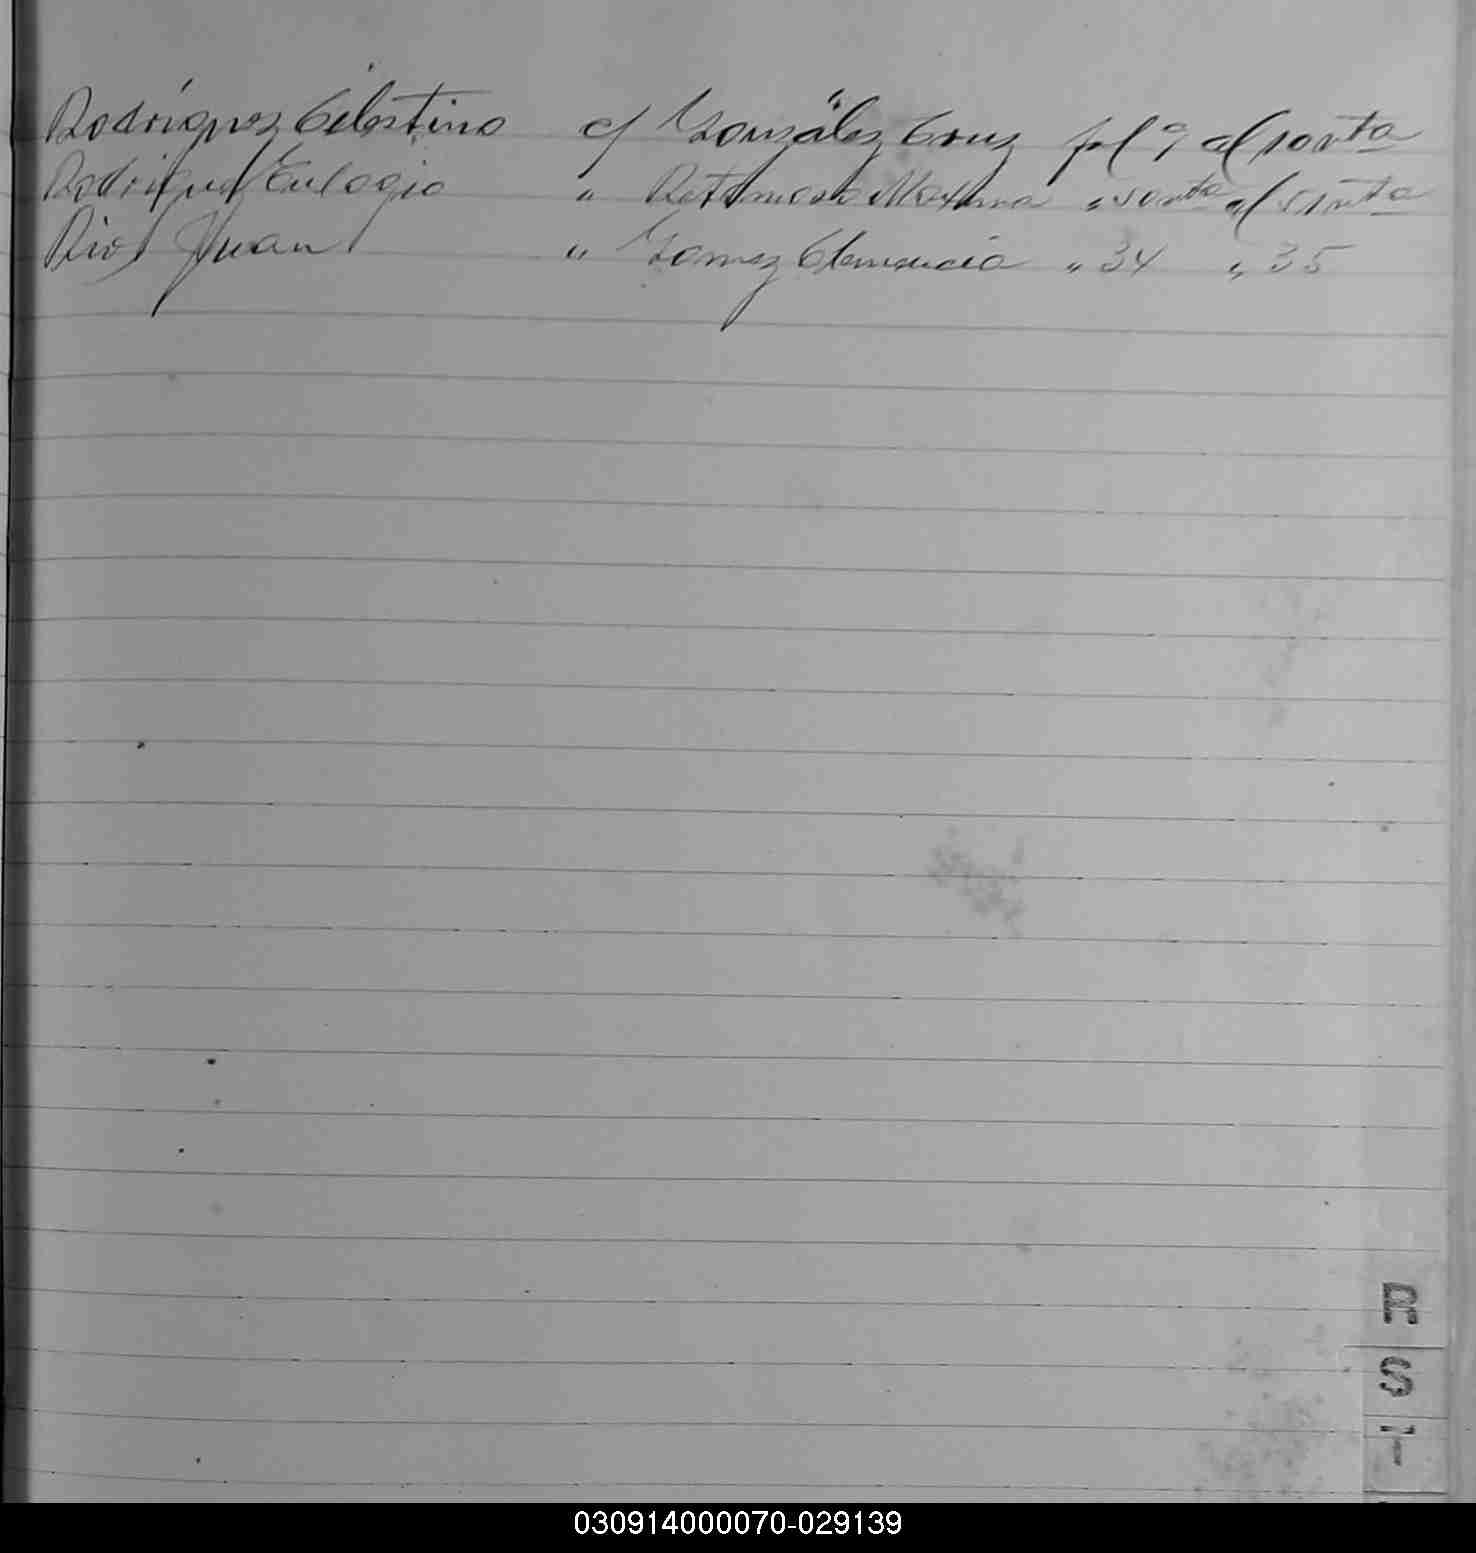 Rodríguez Celestino c/ González Cruz fol 9 al vonta
Rodriguez Eulogio " Maxima " vonta al vonta
Rios Juan " Gomez Clemencia " 34 " 35
R
S
T
030914000070-029139